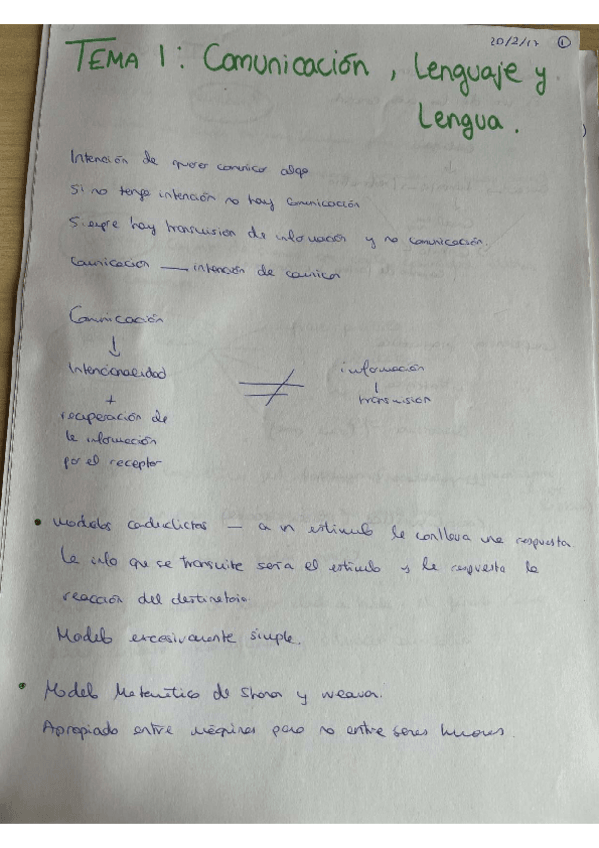 20/2/17 1
TEMA 1: Comunicación, Lenguaje y
Lengua.
Intención de querer comunicar algo
Si no tengo intención no hay comunicación
Siempre hay transmisión de información y no comunicación.
Comunicación — intención de comunicar
Comunicación
↓
Intencionalidad ≠ información
+ transmisión
recuperación de
la información
por el receptor
• Modelos conductistas — a un estímulo le conlleva una respuesta
la info que se transmite sería el estímulo y la respuesta la
reacción del destinatario.
Modelo excesivamente simple.
• Modelo Matemático de Shanon y Weaver.
Apropiado entre máquinas pero no entre seres humanos.